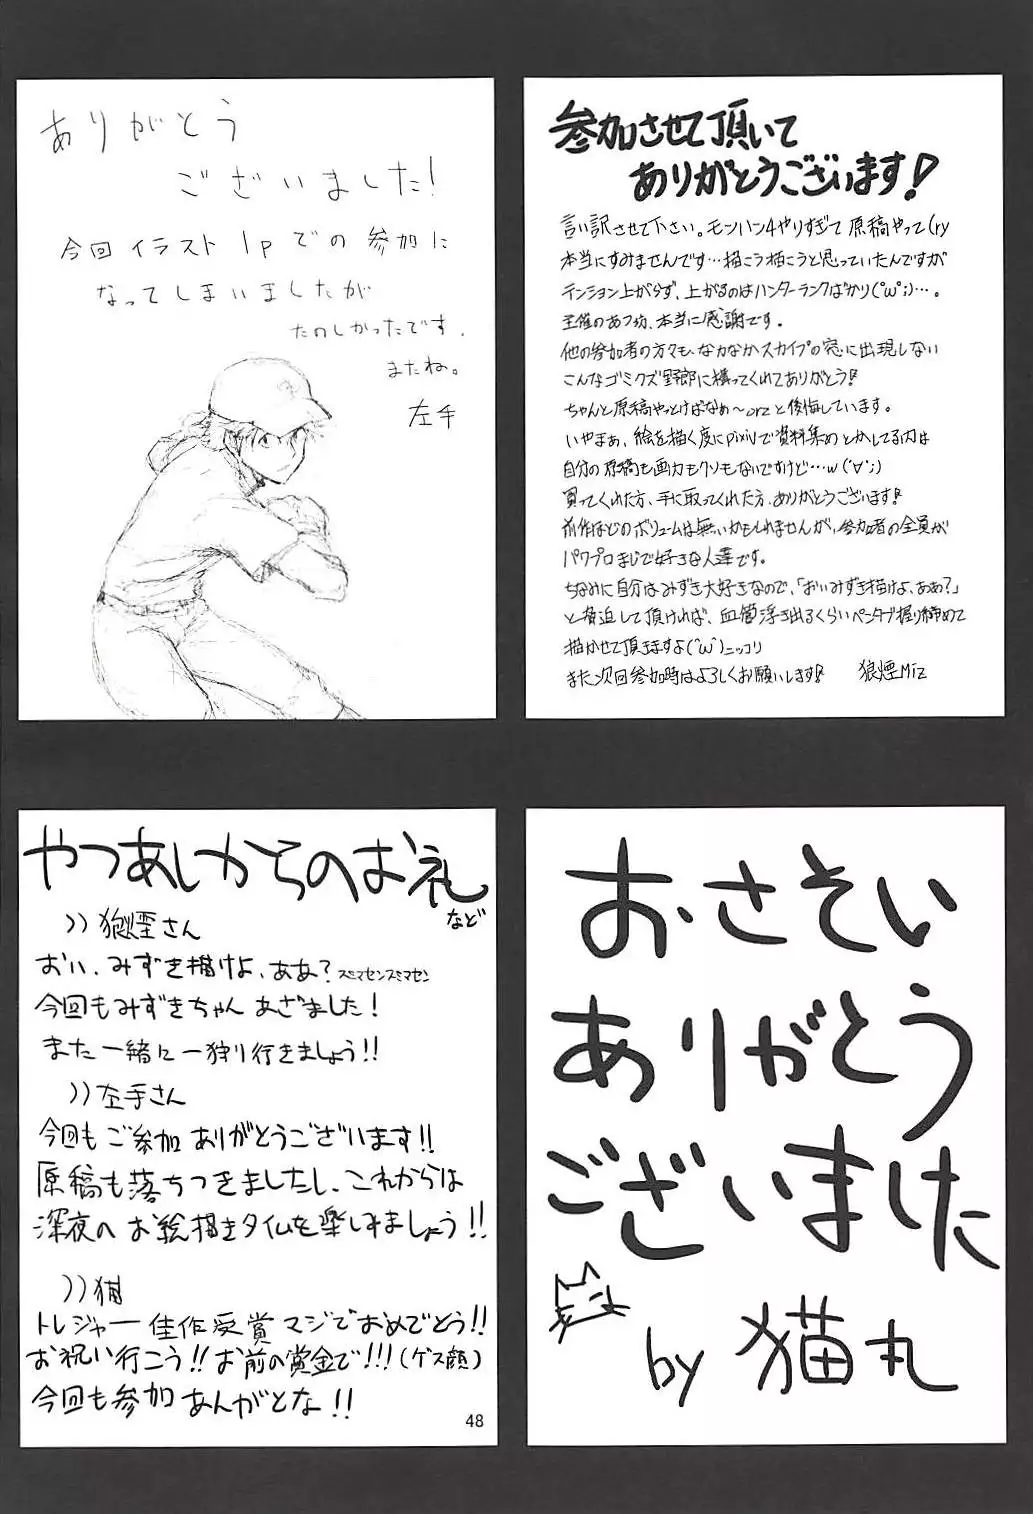 ありがとう
ございました!
今回イラスト1pでの参加に
なってしまいましたが
たのしかったです.
またね。
左手
参加させて頂いて
ありがとうございます!
言い訳させて下さい。モンハン4やりすぎて原稿やって(ry
本当にすみませんです…描こう描こうと思っていたんですが
テンション上がらず、上がるのはハンターランクばかり(°ω°;)…。
主催のあつ坊、本当に感謝です。
他の参加者の方々も、なかなかスカイプの窓に出現しない
こんなゴミクズ野郎に構ってくれてありがとう!
ちゃんと原稿やっとけばなぁ〜orzと後悔しています。
いやまぁ、絵を描く度にpixivで資料集めとかしてる内は
自分の原稿も画力もクソもないですけど…w(´∀`;)
買ってくれた方、手に取ってくれた方、ありがとうございます!
前作ほどのボリュームは無いかもしれませんが、参加者の全員が
パワプロまじで好きな人達です。
ちなみに自分はみずき大好きなので、「おいみずき描けよ、ああ?」
と脅迫して頂ければ、血管浮き出るくらいペンタブ握り締めて
描かせて頂きますよ(^ω^)ニッコリ
また次回参加時はよろしくお願いします! 狼煙Miz
やつあしからのお礼
など
))狼煙さん
おい、みずき描けよ、ああ?スミマセンスミマセン
今回もみずきちゃんあざました!
また一緒に一狩り行きましょう!!
))左手さん
今回もご参加ありがとうございます!!
原稿も落ちつきましたし、これからは
深夜のお絵描きタイムを楽しみましょう!!
))猫
トレジャー佳作受賞マジでおめでとう!!
お祝い行こう!!お前の賞金で!!!(ゲス顔)
今回も参加あんがとな!!
48
おさそい
ありがとう
ございました
by 猫丸